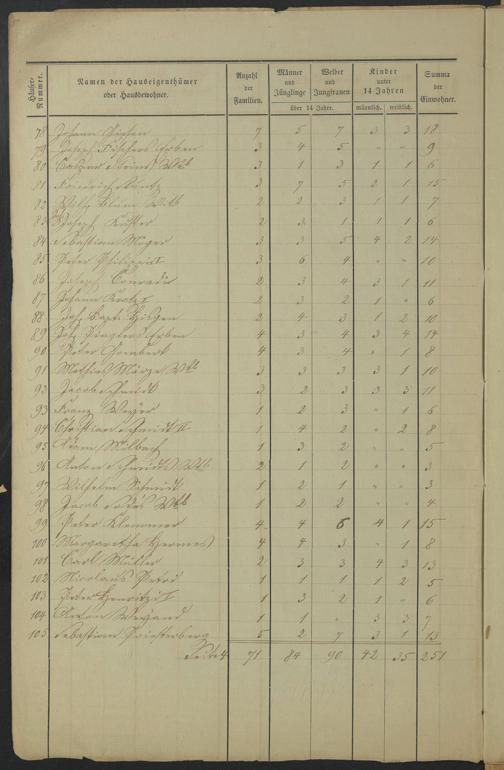 Häuser-Nummer. Namen der Hauseigenthümer oder Hausbewohner. Anzahl der Familien. Männer und Jünglinge Weiber und Jungfrauen über 14 Jahre. Kinder unter 14 Jahren männlich. weiblich. Summa der Einwohner.
78 Johann 7 5 7 3 3 18
79 Joseph Fischers Erben 3 4 5 " " 9
80 Caspar Wtb 3 1 3 1 1 6
81 Friedrich 3 7 5 2 1 15
82 Blum Wtb 2 2 3 1 1 7
83 Joseph Küster 2 3 1 1 1 6
84 Sebastian Mayer 3 3 5 4 2 14
85 Peter Philippi 3 6 4 " " 10
86 Joseph Conradi 2 3 4 3 1 11
87 Johann 2 3 2 1 " 6
88 2 4 3 1 2 10
89 Erben 4 3 4 3 4 14
90 Peter Gombert 4 3 4 " 1 8
91 Mathias Wtb 3 3 3 3 1 10
92 Jacob Schmidt 3 2 3 3 3 11
93 Franz 1 2 3 " 1 6
94 Christian Schmidt II 1 4 2 " 2 8
95 Adam Milbach 1 3 2 " " 5
96 Anton Schmidt Wtb 2 1 2 " " 3
97 Wilhelm Schmidt 1 2 1 " " 3
98 Jacob Wtb 1 2 2 " " 4
99 Peter Klemmer 4 4 6 4 1 15
100 Margaretha Hermes 4 4 3 " 1 8
101 Carl Müller 2 3 3 4 3 13
102 Nicolaus 1 1 1 1 2 5
103 Peter 1 3 2 1 " 6
104 Anton Weyand 1 1 " 3 3 7
105 Sebastian 5 2 7 3 1 13
Seite 4 71 84 90 42 35 251